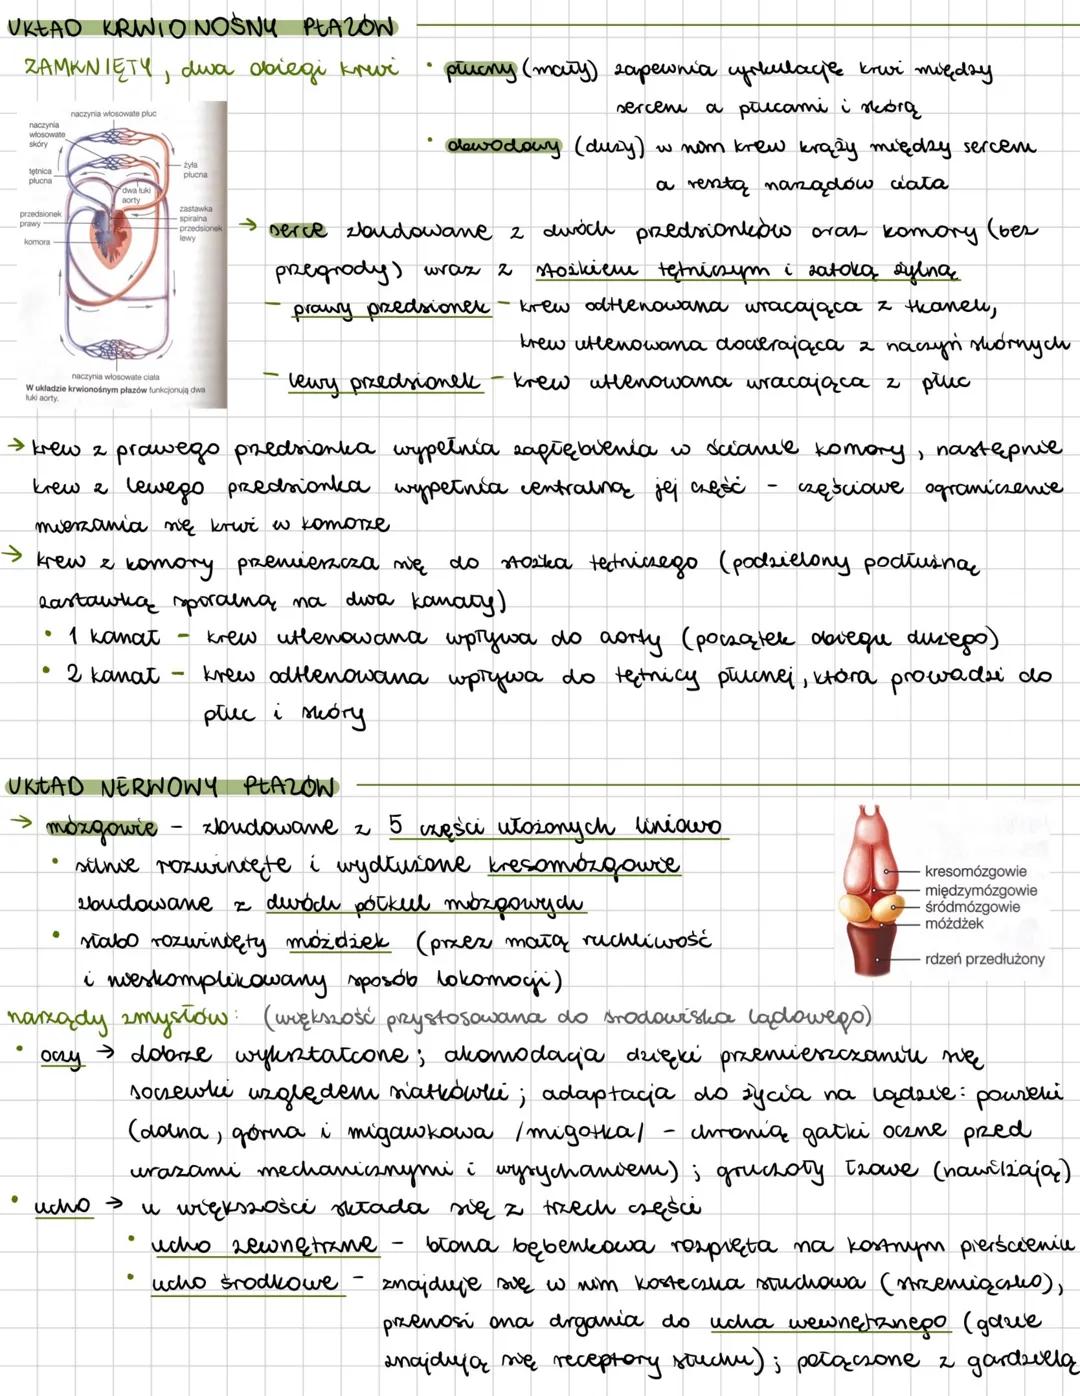 UKŁAD KRWIONOŚNY PŁAZÓW
ZAMKNIĘTY, dwa obiegi krwi
• płucny (mały) zapewnia cyrkulację krwi między
sercem a płucami i skórą
• obwodowy (duży) w nim krew krąży między sercem
a resztą narządów ciała
naczynia włosowate płuc
naczynia
włosowate
skóry
tętnica
płucna
żyła
płucna
dwa łuki
aorty
przedsionek
prawy
zastawka
spiralna
przedsionek
lewy
komora
naczynia włosowate ciała
W układzie krwionośnym płazów funkcjonują dwa
łuki aorty.
→ serce zbudowane z dwóch przedsionków oraz komory (bez
przegrody) wraz z stożkiem tętniczym i zatoką żylną
- prawy przedsionek - krew odtlenowana wracająca z tkanek,
krew utlenowana docierająca z naczyń skórnych
- lewy przedsionek - krew utlenowana wracająca z płuc
→ krew z prawego przedsionka wypełnia zagłębienia w ścianie komory, następnie
krew z lewego przedsionka wypełnia centralną jej część - częściowe ograniczenie
mieszania się krwi w komorze
→ krew z komory przemieszcza się do stożka tętniczego (podzielony podłużną
zastawką spiralną na dwa kanały)
• 1 kanał - krew utlenowana wpływa do aorty (początek obiegu dużego)
• 2 kanał - krew odtlenowana wpływa do tętnicy płucnej, która prowadzi do
płuc i skóry
UKŁAD NERWOWY PŁAZÓW
→ mózgowie - zbudowane z 5 części ułożonych liniowo
• silnie rozwinięte i wydłużone kresomózgowie
zbudowane z dwóch półkul mózgowych
• słabo rozwinięty móżdżek (przez małą ruchliwość
i nieskomplikowany sposób lokomocji)
kresomózgowie
międzymózgowie
śródmózgowie
móżdżek
rdzeń przedłużony
narządy zmysłów: (większość przystosowana do środowiska lądowego)
• oczy → dobrze wykształcone; akomodacja dzięki przemieszczaniu się
soczewki względem siatkówki; adaptacja do życia na lądzie: powieki
(dolna, górna i migawkowa /migotka/ - chronią gałki oczne przed
urazami mechanicznymi i wysychaniem); gruczoły łzowe (nawilżają)
• ucho → u większości składa się z trzech części
• ucho zewnętrzne - błona bębenkowa rozpięta na kostnym pierścieniu
• ucho środkowe - znajduje się w nim kosteczka słuchowa (strzemiączko),
przenosi ona drgania do ucha wewnętrznego (gdzie
znajdują się receptory słuchu); połączone z gardzielą